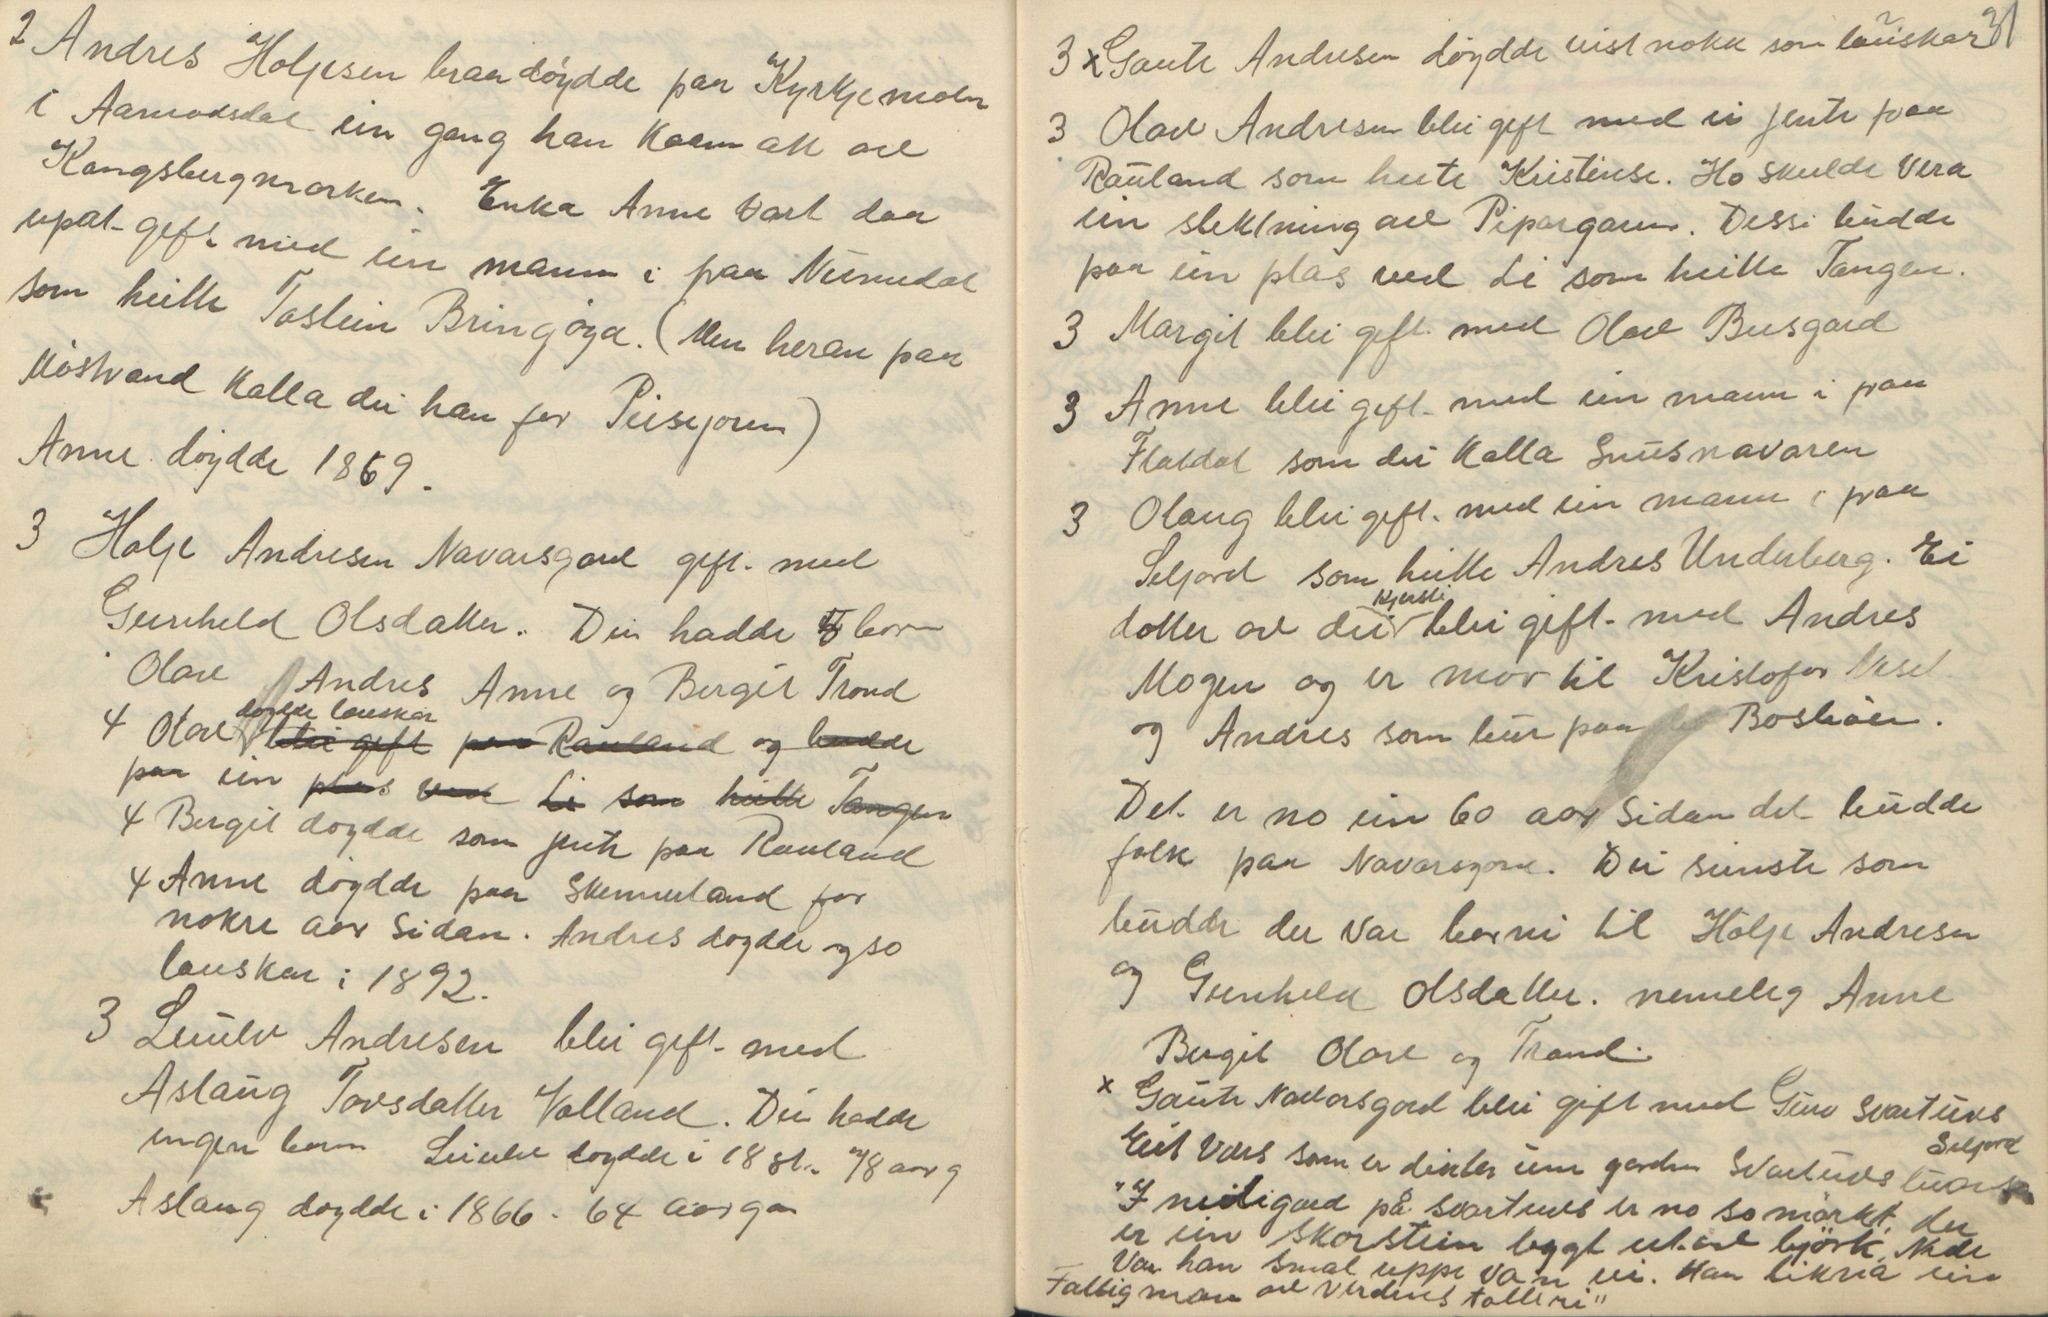 2 Andres Holjesen braadøydde paa Kyrkjemoen
i Aamodsdal ein gang han kaam att av
Kongsbergmarken. Enka Anne vart daa
upat-gift med ein mann i fraa Numedal
som heitte Tostein Bringøya. (Men heran paa
Møsvand kalla dei han for Peisejoren)
Anne døydde 1869.
3 Holje Andresen Navarsgard gift. med
Gunheld Olsdatter. Dei hadde 5 born
Olav Andres Anne og Bergit Trond
døydde lauskar
4 Olav blei gift paa Rauland og budde
paa ein plass ved Li som heitte Tangen
4 Bergit døydde som jente paa Rauland
4 Anne døydde paa Skinnerland for
nokre aar sidan. Andres døydde og so
lauskar i 1892.
3 Leiulv Andresen blei gift- med
Aslaug Tovsdatter Valland. Dei hadde
ingen born Leiulv døydde i 1881. 78 aar g
Aslaug døydde i 1866. 64 aar ga
31
3 x Gaute Andresen døydde vist nokk som lauskar
3 Olav Andresen blei gift med ei jente fraa
Rauland som heete Kristense. Ho skulde vera
ein slektning av Pipargauen. Dessi budde
paa ein plas ved Li som heitte Tangen.
3 Margit blei gift. med Olav Busgard
3 Anne blei gift- med ein mann i fraa
Flatdal som dei kalla Snusnavaren
3 Olaug blei gift. med ein mann i fraa
Seljord som heitte Andres Underberg. Ei
Kjersti
dotter av dei blei gift- med Andres
Mogen og er mor til Kristofer
og Andres som bur paa Bosbøen.
Det er no ein 60 aar sidan det budde
folk paa Navarsgard. Dei seinste som
budde der var borni til Holje Andresen
og Gunheld Olsdatter. nemeleg Anne
Bergit Olav og Trond.
x Gaute Navarsgard blei gift med Guro Svartuvs
Seljord
Eit Vers som er dikta um garden Svartuvs
"I midigard på Svartuvs er no so mørkt, der
er ein skorstein bygt ut av bjørk, Nede
var han smal uppe va'n vi. Han likna ein
Fattig man av verdens talleri"